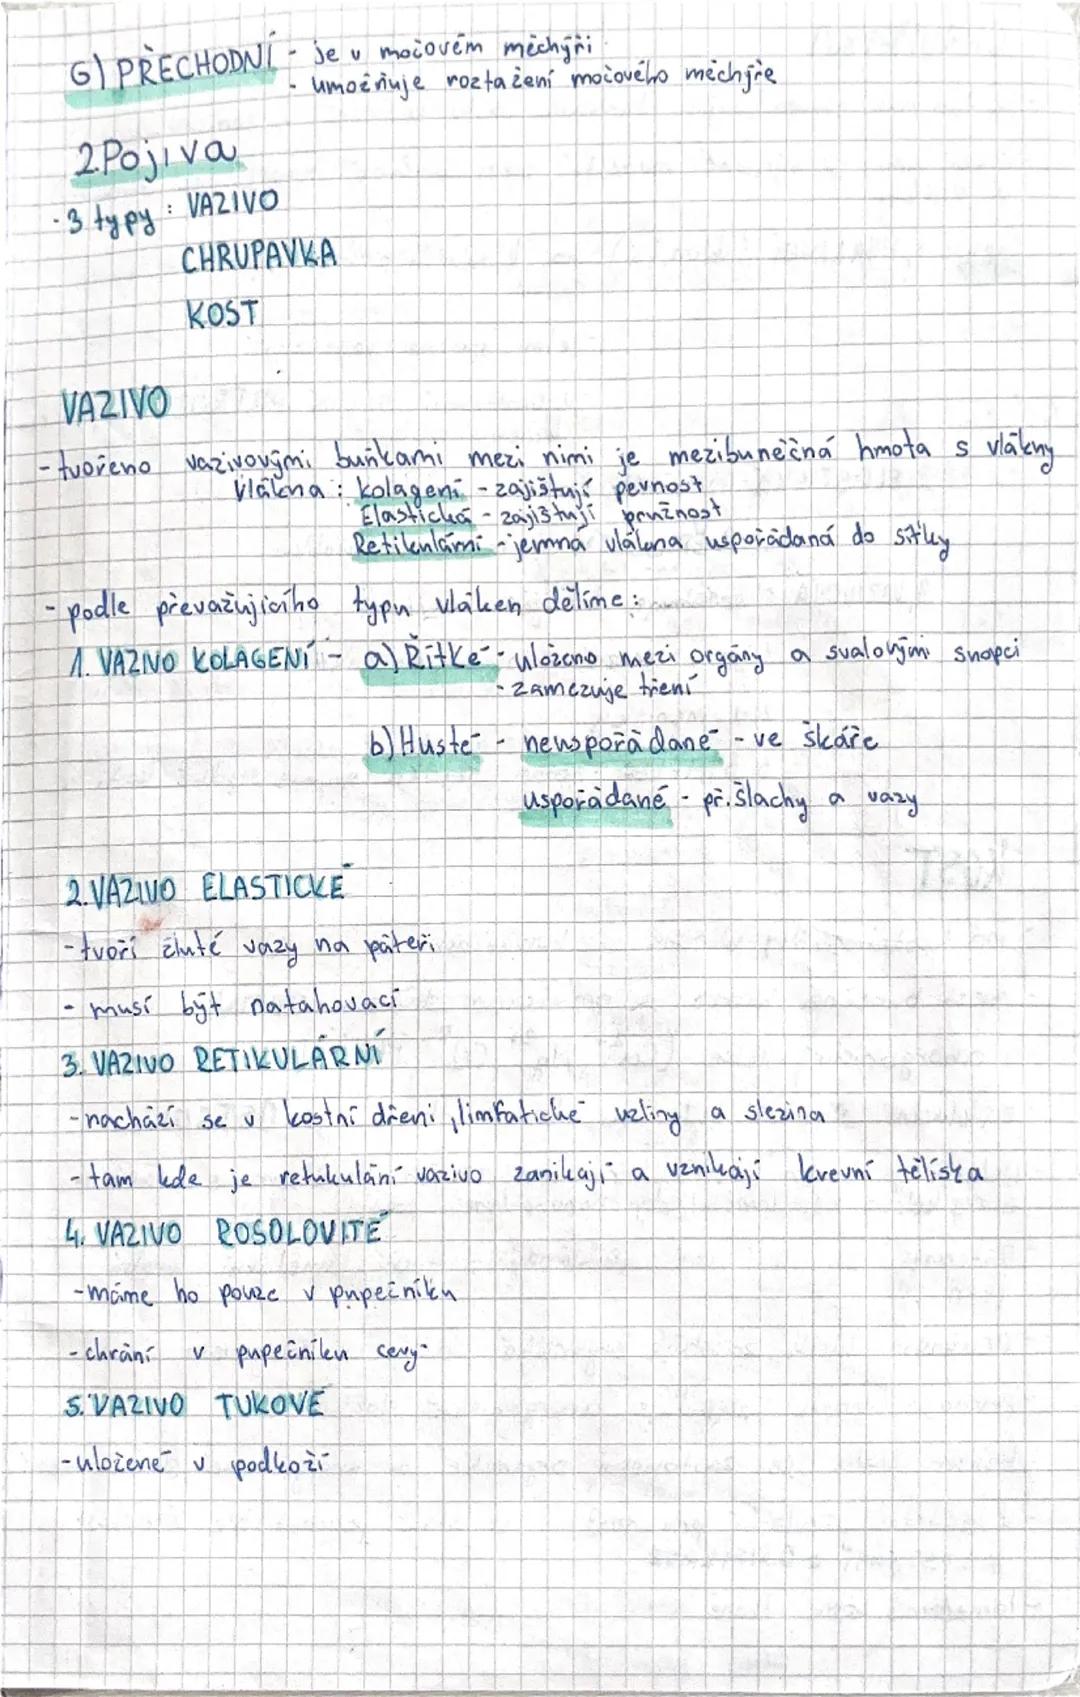 G) PŘECHODNÍ - je v močovém měchýři
- umožňuje roztažení močového měchýře
2. Pojiva
- 3 typy : VAZIVO
CHRUPAVKA
KOST
VAZIVO
- tvořeno vazivovými buňkami mezi nimi je mezibuněčná hmota s vlákny
Vlákna : kolagení - zajištují pevnost
Elastická - zajištují pružnost
Retikulární - jemná vlákna uspořádaná do sítky
- podle převažujicího typu vláken dělíme :
1. VAZIVO KOLAGENÍ - a) Řítké - uloženo mezi orgány a svalovými snopci
- zamezuje tření
b) Husté - neuspořádané - ve škáře
uspořádané - př. šlachy a vazy
2. VAZIVO ELASTICKÉ
- tvoří žluté vazy na páteři
- musí být natahovací
3. VAZIVO RETIKULÁRNÍ
- nachází se v kostní dřeni, limfatické uzliny a slezina
- tam kde je retukulání vazivo zanikají a vznikají krevní tělíska
4. VAZIVO ROSOLOVITÉ
- máme ho pouze v pupečníku
- chrání v pupečníku cevy
5. VAZIVO TUKOVÉ
- uložené v podkoží